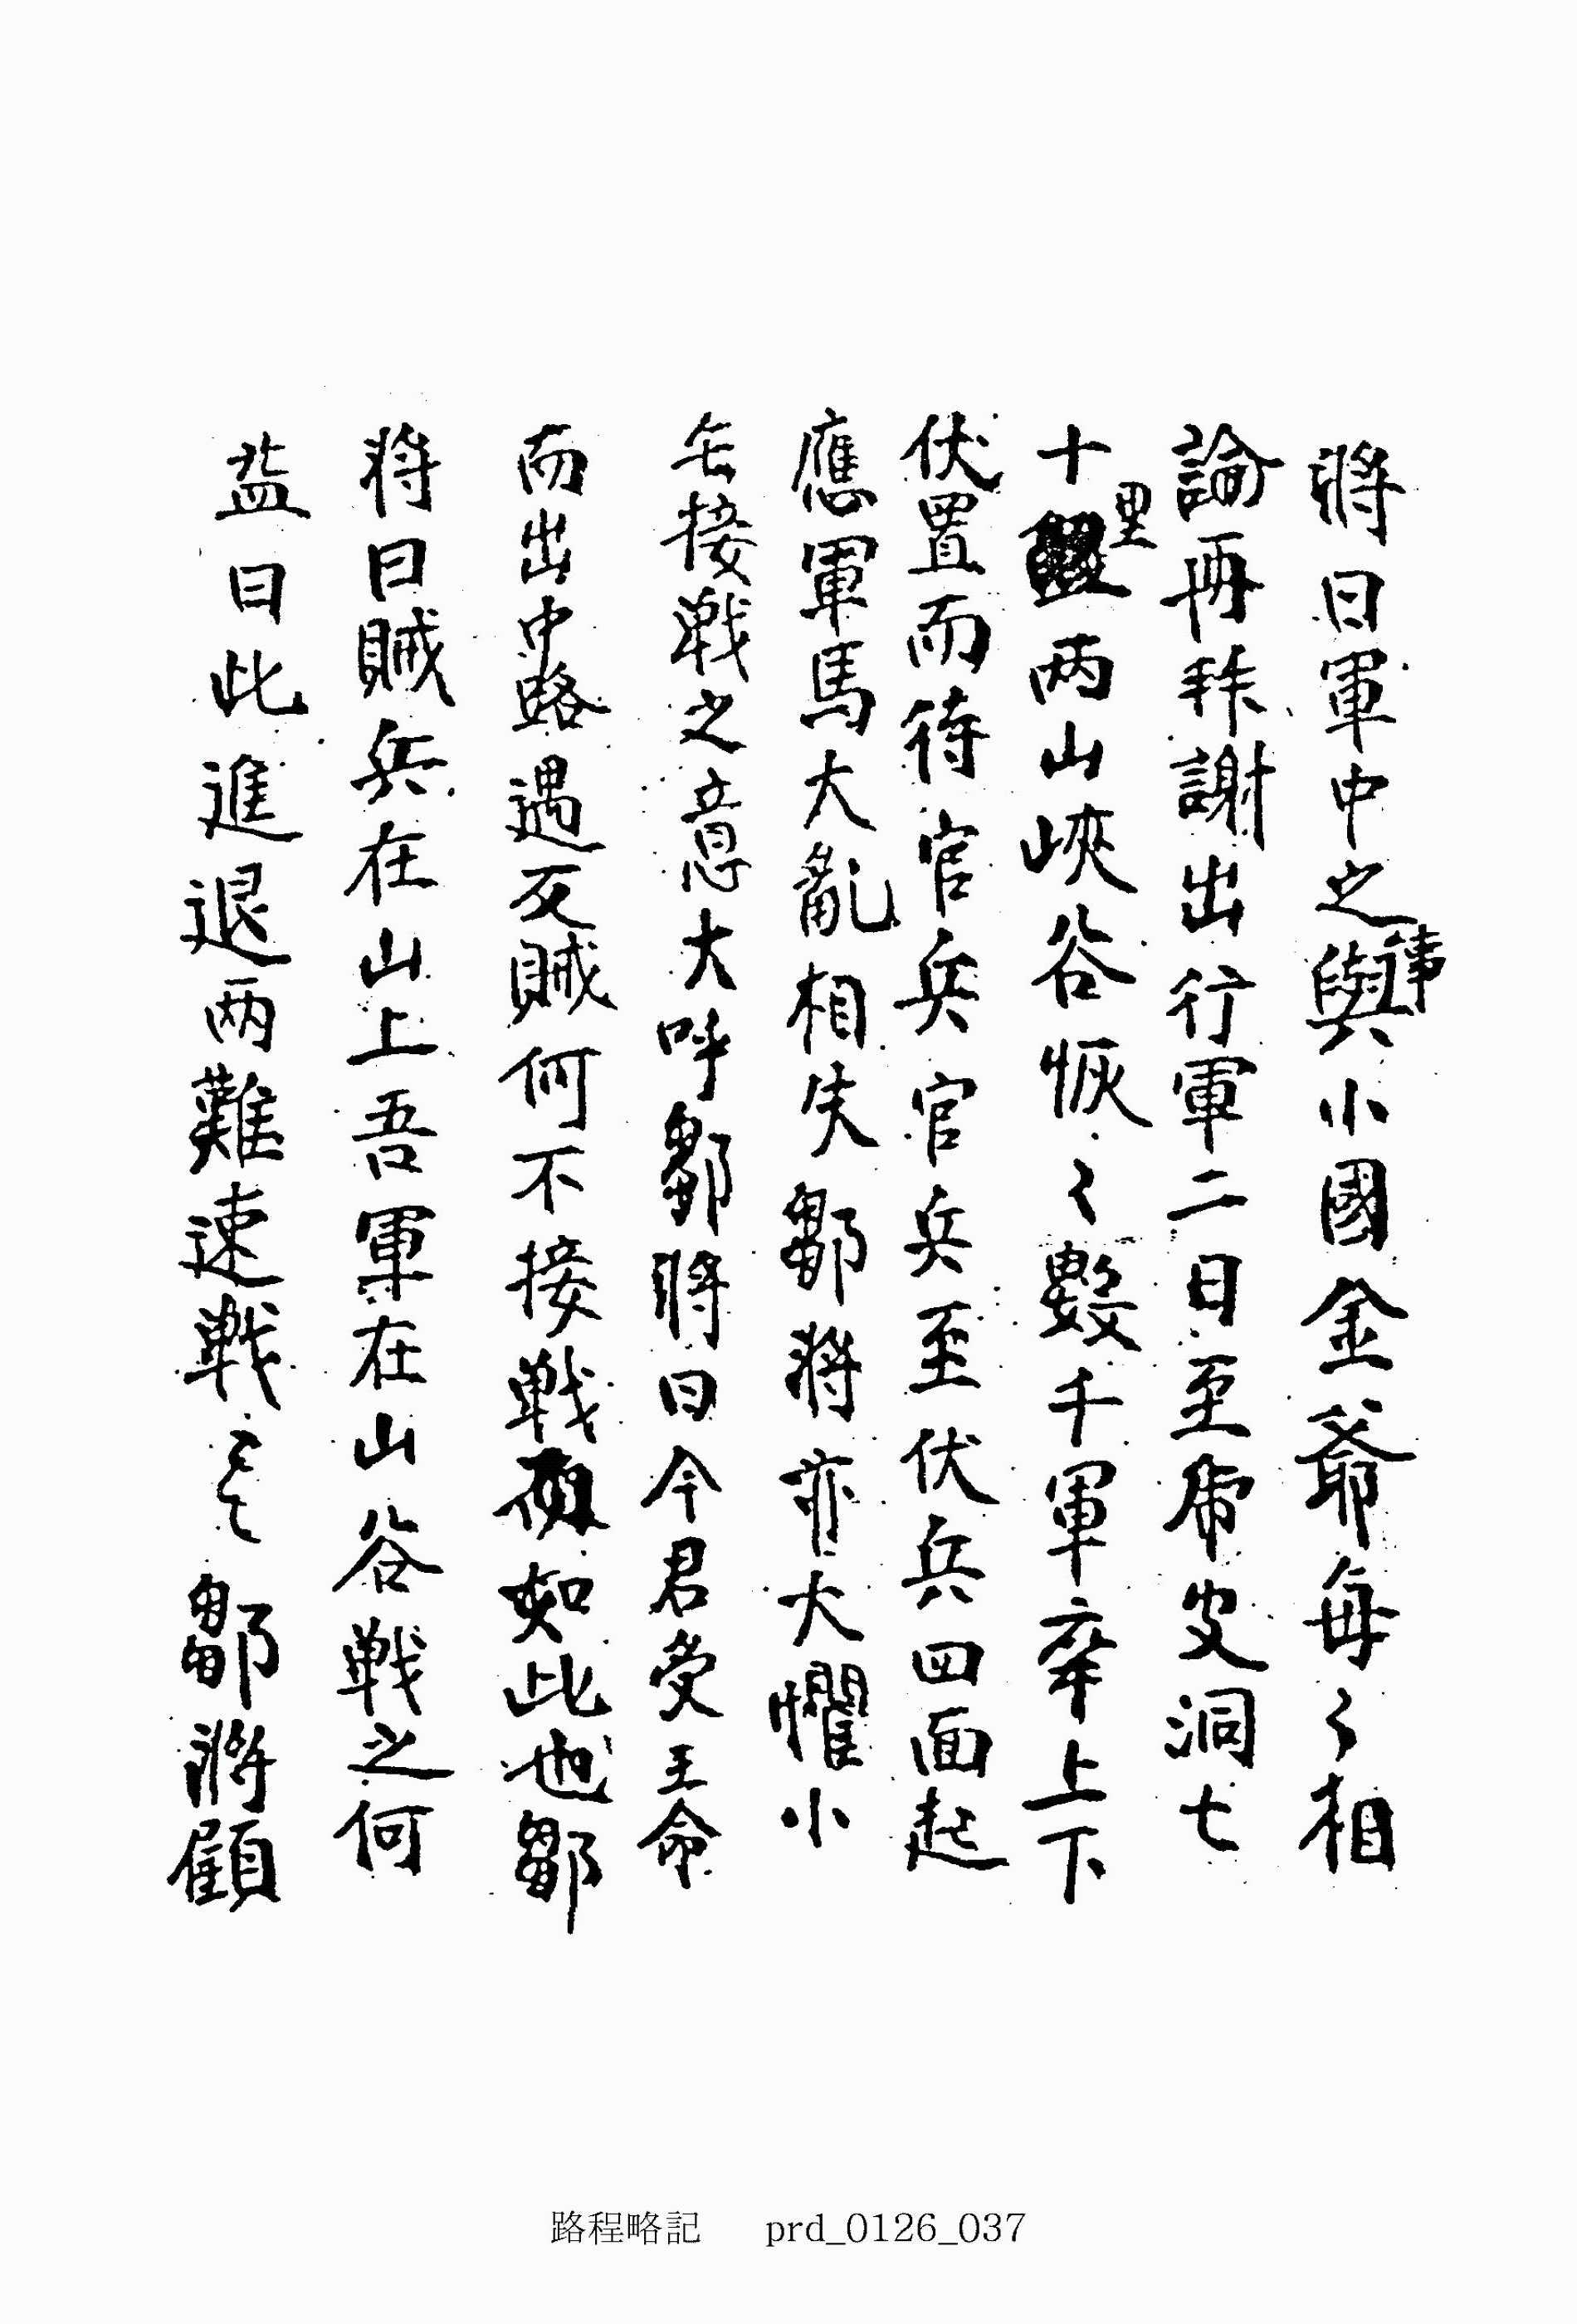 將曰軍中之事與小國金爺每〻相
論再拜謝出行軍二日至虎皮洞七
十里兩山峽谷恢〻數千軍卒上下
伏置而待官兵官兵至伏兵四面起
應軍馬大亂相失鄒將亦大懼小
無接戰之意大呼鄒將曰今君受王命
而出中路遇反賊何不接戰而如此也鄒
將曰賊兵在山上吾軍在山谷戰之何
益曰此進退兩難速戰〻〻鄒將顧
路程略記 prd_0126_037